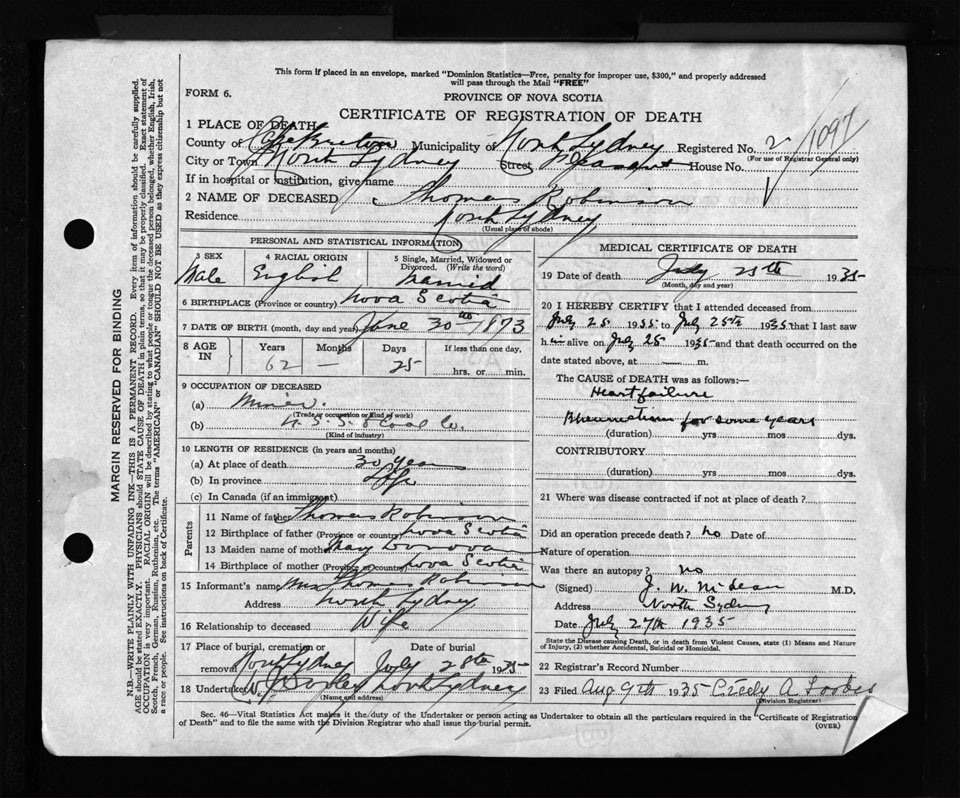 This form if placed in an envelope, marked "Dominion Statistics—Free, penalty for improper use, $300," and properly addressed
will pass through the Mail "FREE"
FORM 6.
PROVINCE OF NOVA SCOTIA
CERTIFICATE OF REGISTRATION OF DEATH
1 PLACE OF DEATH
County of Cape Breton Municipality of North Sydney Registered No. 1097
(For use of Registrar General only)
City or Town North Sydney Street Pleasant House No.
If in hospital or institution, give name
2 NAME OF DECEASED Thomas Robinson
Residence North Sydney
(Usual place of abode)
PERSONAL AND STATISTICAL INFORMATION
3 SEX 4 RACIAL ORIGIN 5 Single, Married, Widowed or
Divorced. (Write the word)
Male English Married
6 BIRTHPLACE (Province or country) Nova Scotia
7 DATE OF BIRTH (month, day and year) June 30th 1873
8 AGE IN Years Months Days If less than one day,
62 — 25 hrs. or min.
9 OCCUPATION OF DECEASED
(a) Miner.
(Trade or occupation or Kind of work)
(b) S. & Coal Co.
(Kind of industry)
10 LENGTH OF RESIDENCE (in years and months)
(a) At place of death 30 years
(b) In province Life
(c) In Canada (if an immigrant)
Parents
11 Name of father Thomas Robinson
12 Birthplace of father (Province or country) Nova Scotia
13 Maiden name of mother Mary Donovan
14 Birthplace of mother (Province or country) Nova Scotia
15 Informant's name Mrs Thomas Robinson
Address North Sydney
16 Relationship to deceased Wife
17 Place of burial, cremation or Date of burial
removal North Sydney July 28th 1935
18 Undertaker North Sydney
(Name and address)
MEDICAL CERTIFICATE OF DEATH
19 Date of death July 25th 1935
(Month, day and year)
20 I HEREBY CERTIFY that I attended deceased from
July 25 1935 to July 25th 1935 that I last saw
him alive on July 25 1935 and that death occurred on the
date stated above, at — m.
The CAUSE OF DEATH was as follows:—
Heart failure
Rheumatism for some years
(duration) yrs mos dys.
CONTRIBUTORY
(duration) yrs mos dys.
21 Where was disease contracted if not at place of death?
Did an operation precede death? no Date of
Nature of operation
Was there an autopsy? no
(Signed) J. W. McLean M.D.
Address North Sydney
Date July 27th 1935
State the Disease causing Death, or in death from Violent Causes, state (1) Means and Nature
of Injury, (2) whether Accidental, Suicidal or Homicidal.
22 Registrar's Record Number
23 Filed Aug 9th 1935 Cicely A.
(Division Registrar)
Sec. 46—Vital Statistics Act makes it the duty of the Undertaker or person acting as Undertaker to obtain all the particulars required in the "Certificate of Registration
of Death" and to file the same with the Division Registrar who shall issue the burial permit.
(OVER)
MARGIN RESERVED FOR BINDING
N.B.—WRITE PLAINLY WITH UNFADING INK—THIS IS A PERMANENT RECORD. Every item of information should be carefully supplied.
AGE should be stated EXACTLY. PHYSICIANS should STATE CAUSE OF DEATH in plain terms, so that it may be properly classified. Exact statement of
OCCUPATION is very important. RACIAL ORIGIN will be described by stating to what people or tongue the deceased person belonged, whether English, Irish,
Scotch, French, German, Russian, Ruthenian, etc. The terms "AMERICAN" or "CANADIAN" SHOULD NOT BE USED as they express citizenship but not
a race or people. See instructions on back of Certificate.